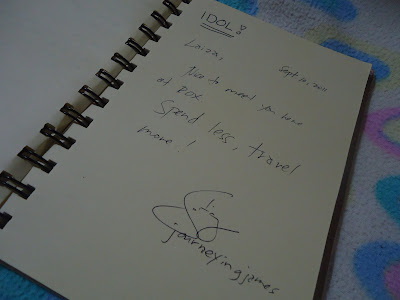 IDOL!
Loiza,
Sept 10, 2011
Nice to meet you here
at ROX
Spend less, travel
more!
journeyingjames